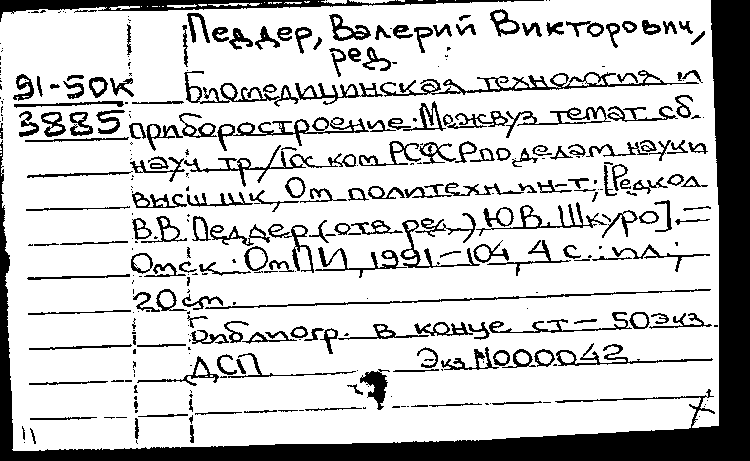 Педдер, Валерий Викторович,
ред.
91-50К Биомедицинская технология и
3885 приборостроение: Межвуз темат сб.
науч. тр / Гос ком РСФСР по делам науки
высш шк, Ом политехн ин-т; [Редкол
В.В. Педдер (отв ред.), Ю В. Шкуро]. =
Омск: ОмПИ, 1991.-104, 4 с.: ил.;
20 ст.
Библиогр. в конце ст - 50 экз
ДСП Экз N000042.